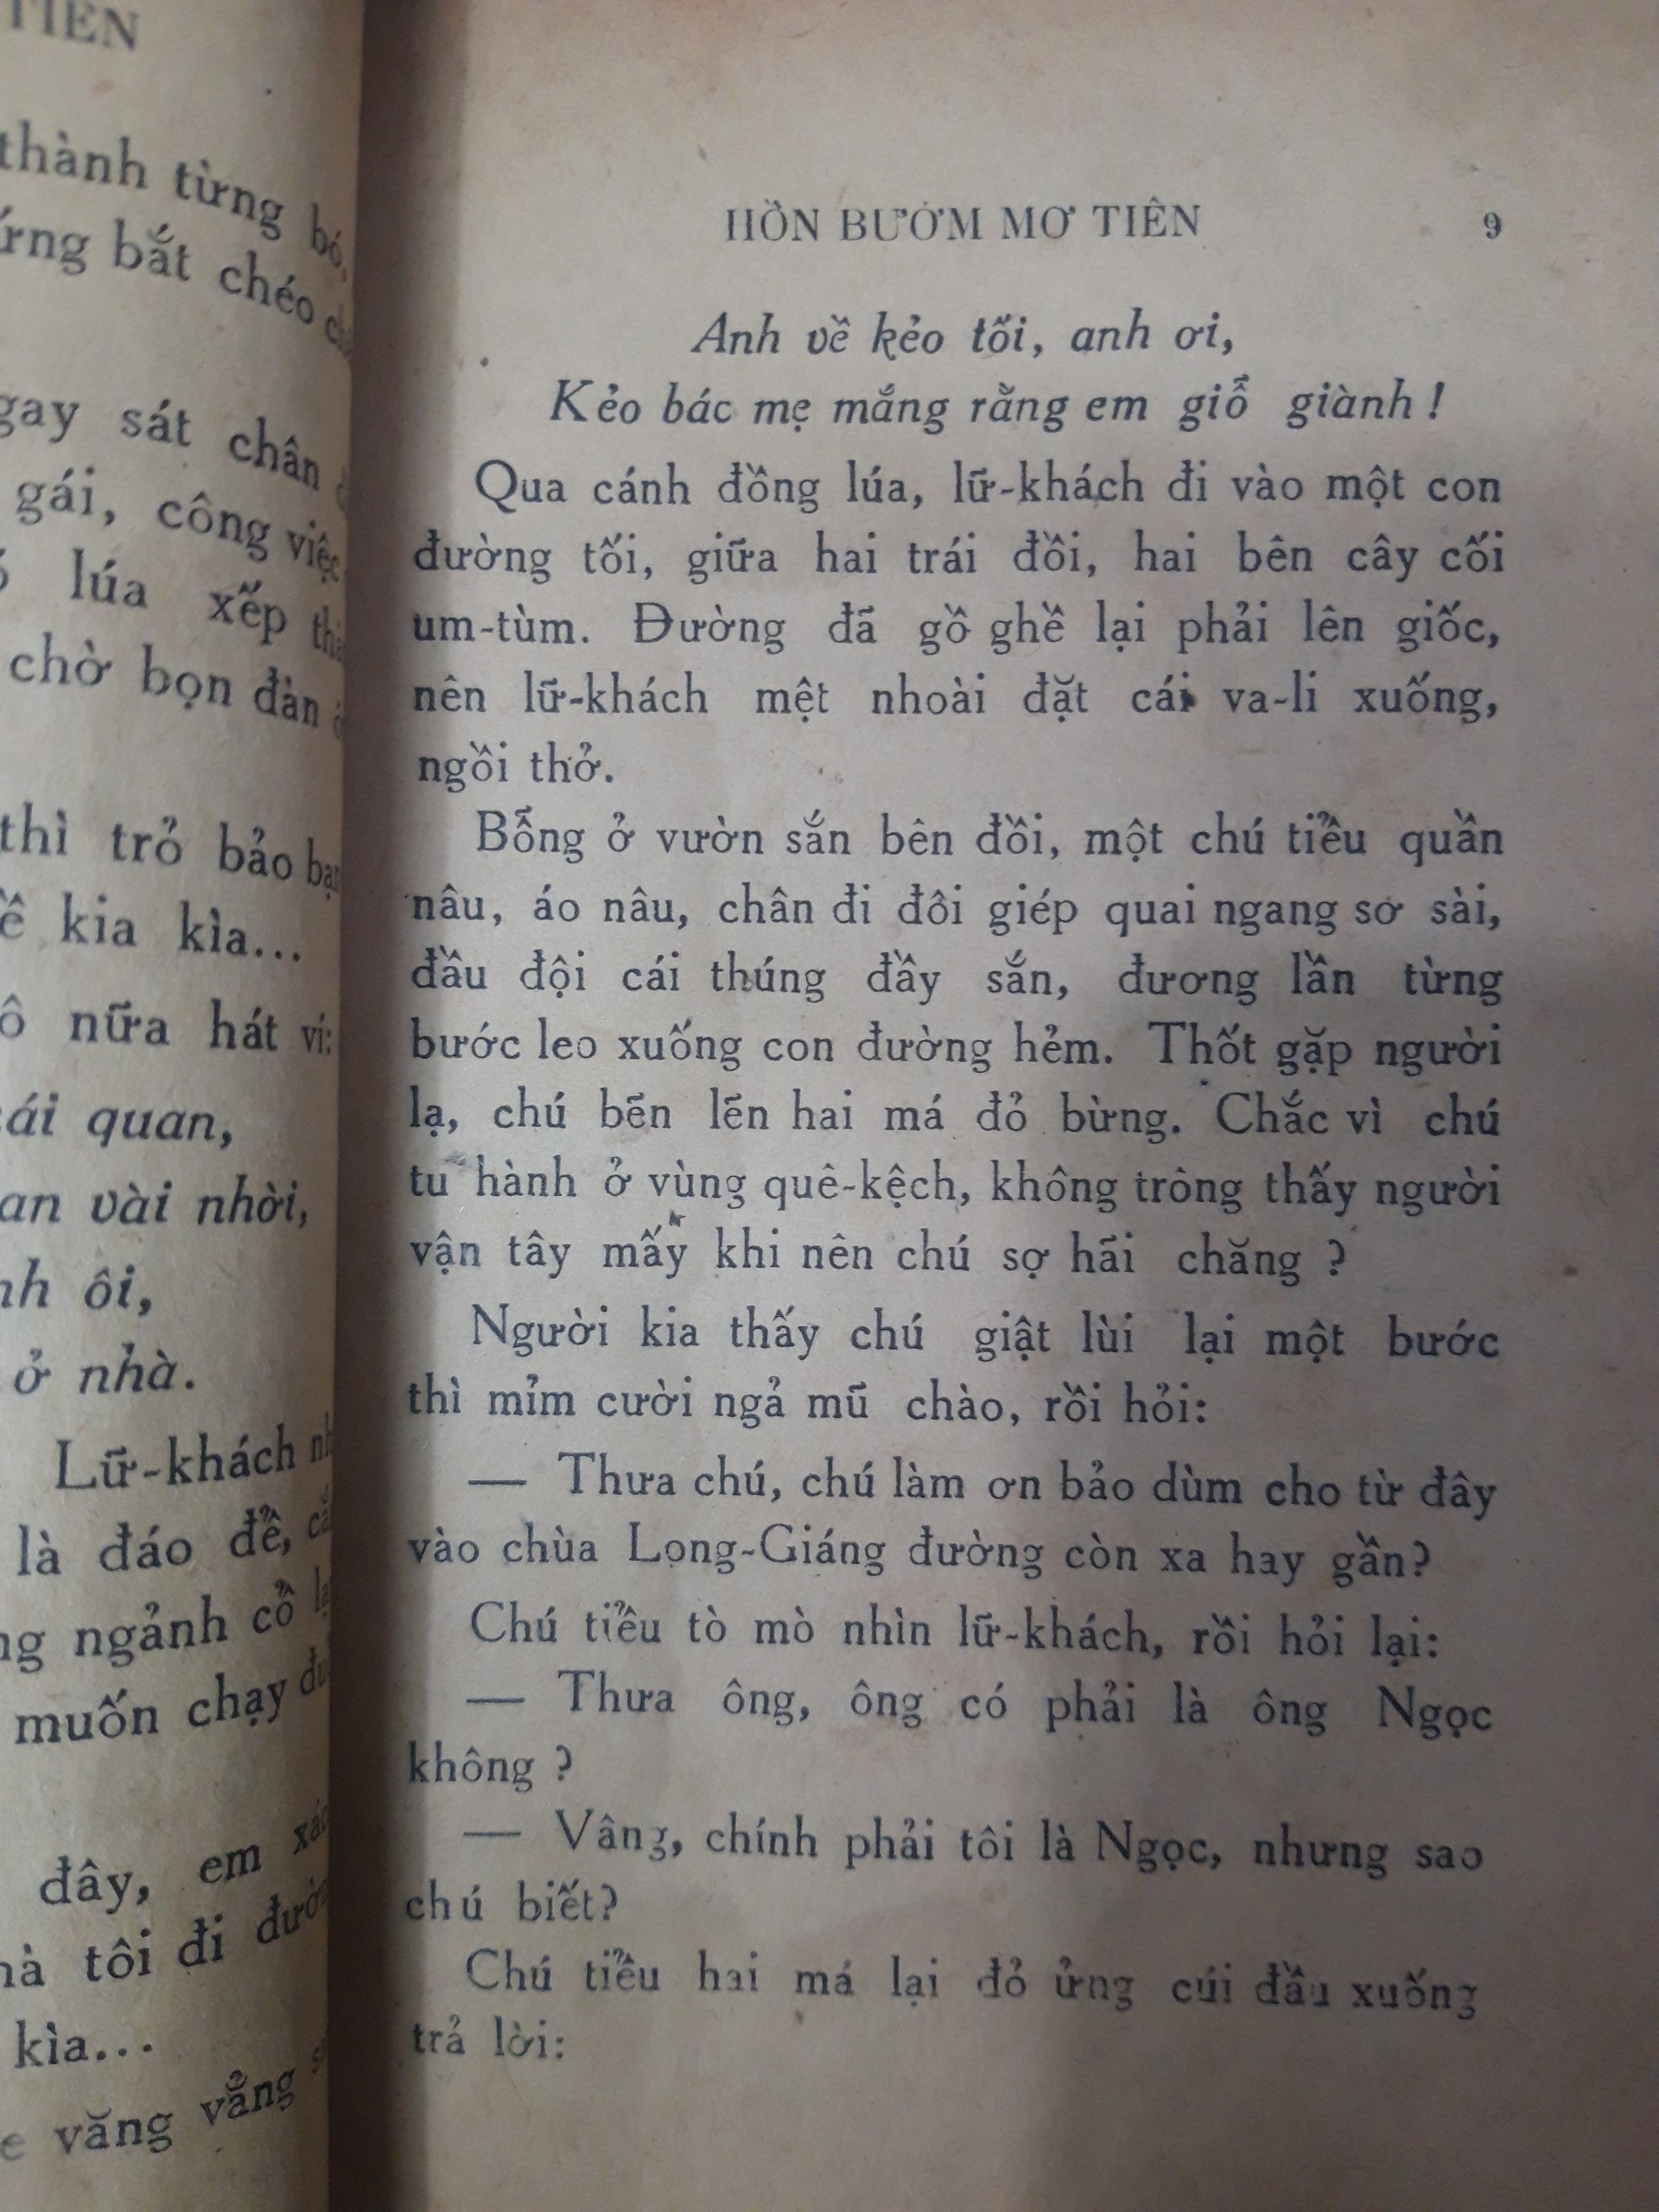 TIÊN
thành từng bó,
bắt chéo
sát chân
gái, công việc
lúa xếp
chờ bọn đàn
thì trỏ bảo bạn
kia kìa...
nữa hát ví:
quan,
vài nhời,
ôi,
ở nhà.
Lữ-khách
là đáo để,
ngảnh cổ
muốn chạy
đây, em
tôi đi
kìa...
văng vẳng
HỒN BƯỚM MƠ TIÊN 9
Anh về kẻo tối, anh ơi,
Kẻo bác mẹ mắng rằng em giỗ giành !
Qua cánh đồng lúa, lữ-khách đi vào một con
đường tối, giữa hai trái đồi, hai bên cây cối
um-tùm. Đường đã gồ ghề lại phải lên giốc,
nên lữ-khách mệt nhoài đặt cái va-li xuống,
ngồi thở.
Bỗng ở vườn sắn bên đồi, một chú tiểu quần
nâu, áo nâu, chân đi đôi giép quai ngang sơ sài,
đầu đội cái thúng đầy sắn, đương lần từng
bước leo xuống con đường hẻm. Thốt gặp người
lạ, chú bẽn lẽn hai má đỏ bừng. Chắc vì chú
tu hành ở vùng quê-kệch, không trông thấy người
vận tây mấy khi nên chú sợ hãi chăng ?
Người kia thấy chú giật lùi lại một bước
thì mỉm cười ngả mũ chào, rồi hỏi:
— Thưa chú, chú làm ơn bảo dùm cho từ đây
vào chùa Long-Giáng đường còn xa hay gần?
Chú tiểu tò mò nhìn lữ-khách, rồi hỏi lại:
— Thưa ông, ông có phải là ông Ngọc
không ?
— Vâng, chính phải tôi là Ngọc, nhưng sao
chú biết?
Chú tiểu hai má lại đỏ ửng cúi đầu xuống
trả lời: